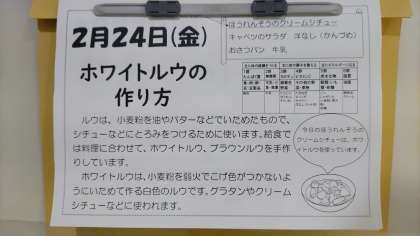 2月24日(金)
ほうれんそうのクリームシチュー
キャベツのサラダ 洋なし(かんづめ)
おさつパン 牛乳
ホワイトルウの
作り方
ルウは、小麦粉を油やバターなどでいためたもので、
シチューなどにとろみをつけるために使います。給食で
は料理に合わせて、ホワイトルウ、ブラウンルウを手作
りしています。
ホワイトルウは、小麦粉を弱火でこげ色がつかない
ようにいためて作る白色のルウです。グラタンやクリーム
シチューなどに使われます。
今日のほうれんそうの
クリームシチューは、ホワ
イトルウを使っています。